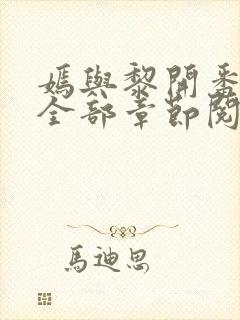 媽與黎開番
全部章節閱
馬迪思